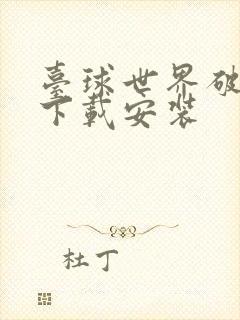 臺球世界破
下載安裝
杜丁